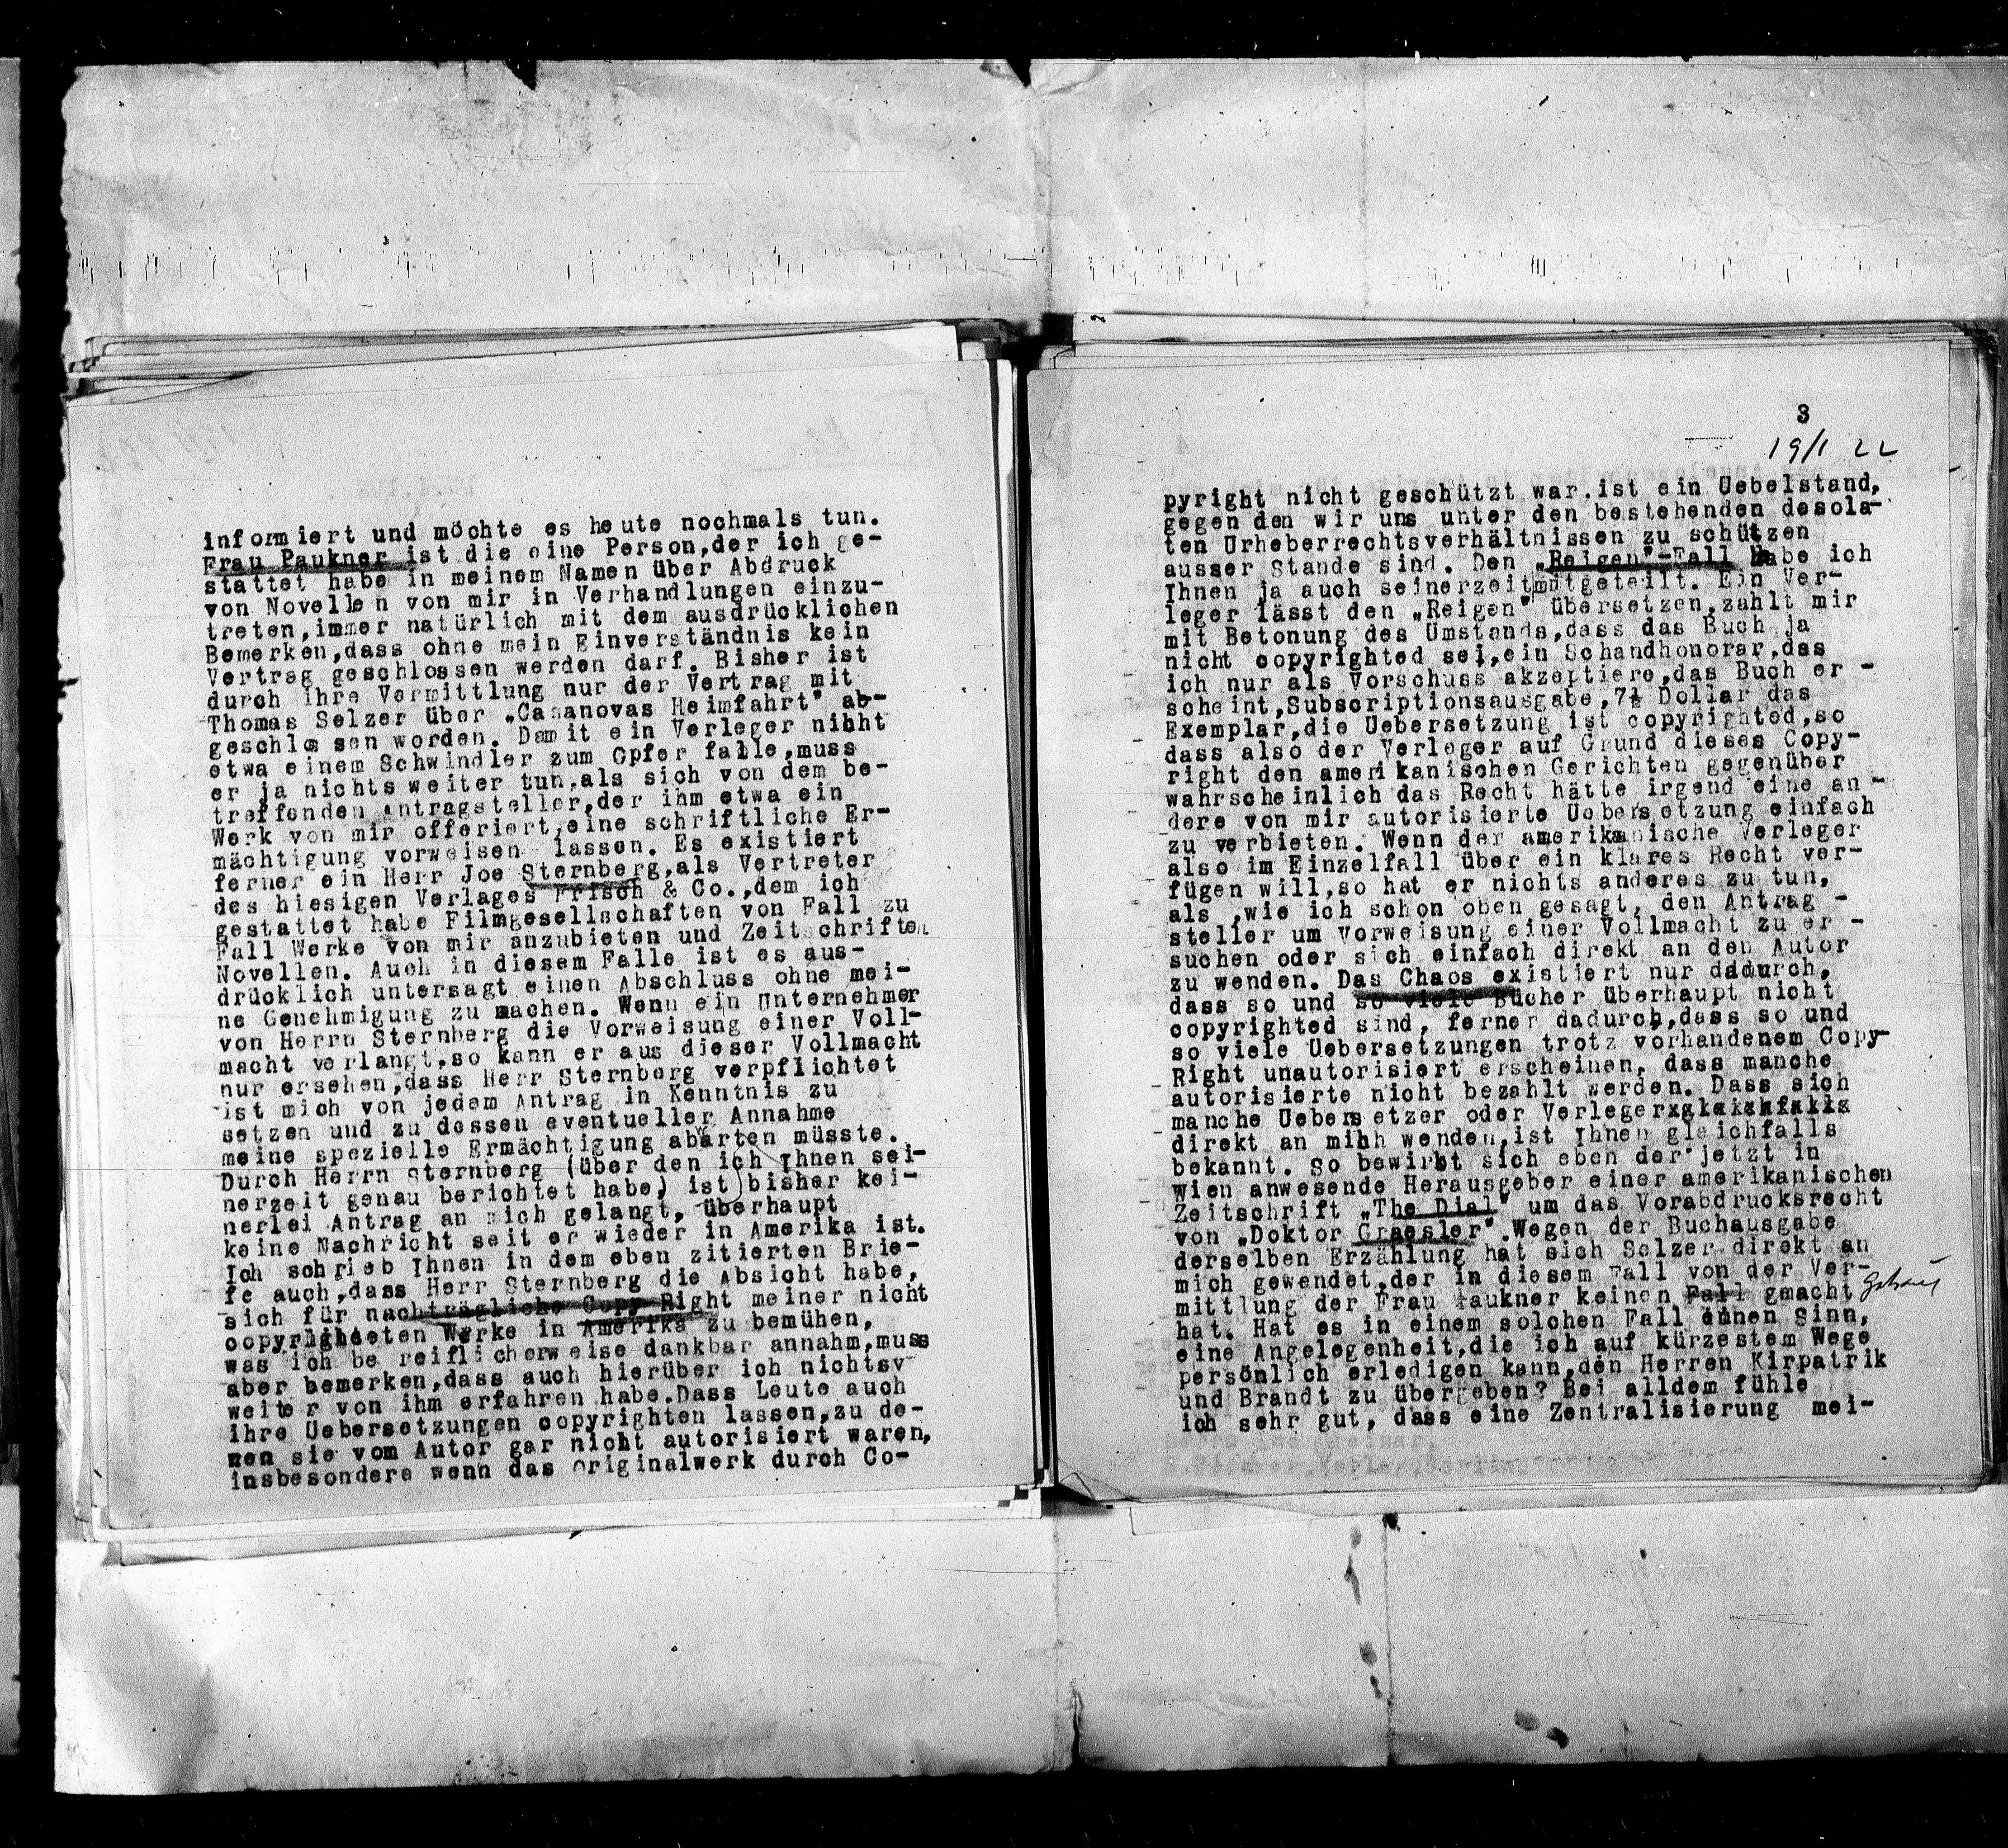 informiert und möchte es heute nochmals tun.
Frau Paukner ist die eine Person,der ich ge-
stattet habe in meinem Namen über Abdruck
von Novellen von mir in Verhandlungen einzu-
treten,immer natürlich mit dem ausdrücklichen
Bemerken,dass ohne mein Einverständnis kein
Vertrag geschlossen werden darf. Bisher ist
durch ihre Vermittlung nur der Vertrag mit
Thomas Selzer über „Casanovas Heimfahrt" ab-
geschlossen worden. Damit ein Verleger nicht
etwa einem Schwindler zum Opfer falle,muss
er ja nichts weiter tun,als sich von dem be-
treffenden Antragsteller,der ihm etwa ein
Werk von mir offeriert,eine schriftliche Er-
mächtigung vorweisen lassen. Es existiert
ferner ein Herr Joe Sternberg,als Vertreter
des hiesigen Verlages Frisch & Co.,dem ich
gestattet habe Filmgesellschaften von Fall zu
Fall Werke von mir anzubieten und Zeitschriften
Novellen. Auch in diesem Falle ist es aus-
drücklich untersagt einen Abschluss ohne mei-
ne Genehmigung zu machen. Wenn ein Unternehmer
von Herrn Sternberg die Vorweisung einer Voll-
macht verlangt,so kann er aus dieser Vollmacht
nur ersehen,dass Herr Sternberg verpflichtet
ist mich von jedem Antrag in Kenntnis zu
setzen und zu dessen eventueller Annahme
meine spezielle Ermächtigung abwarten müsste.
Durch Herrn Sternberg (über den ich Ihnen sei-
nerzeit genau berichtet habe) ist bisher kei-
nerlei Antrag an mich gelangt, überhaupt
keine Nachricht seit er wieder in Amerika ist.
Ich schrieb Ihnen in dem eben zitierten Brie-
fe auch,dass Herr Sternberg die Absicht habe,
sich für nachträgliche Copy Right meiner nicht
copyrighteten Werke in Amerika zu bemühen,
was ich be reiflicherweise dankbar annahm,muss
aber bemerken,dass auch hierüber ich nichtsv
weiter von ihm erfahren habe.Dass Leute auch
ihre Uebersetzungen copyrighten lassen,zu de-
nen sie vom Autor gar nicht autorisiert waren,
insbesondere wenn das Originalwerk durch Co-
3
19/1 22
pyright nicht geschützt war.ist ein Uebelstand,
gegen den wir uns unter den bestehenden desola-
ten Urheberrechtsverhältnissen zu schützen
ausser Stande sind. Den „Reigen"-Fall habe ich
Ihnen ja auch seinerzeit mitgeteilt. Ein Ver-
leger lässt den „Reigen" übersetzen,zahlt mir
mit Betonung des Umstands,dass das Buch ja
nicht copyrighted sei,ein Schandhonorar,das
ich nur als Vorschuss akzeptiere,das Buch er -
scheint,Subscriptionsausgabe,7½ Dollar das
Exemplar,die Uebersetzung ist copyrighted,so
dass also der Verleger auf Grund dieses Copy-
right den amerikanischen Gerichten gegenüber
wahrscheinlich das Recht hätte irgend eine an -
dere von mir autorisierte Uebersetzung einfach
zu verbieten. Wenn der amerikanische Verleger
also im Einzelfall über ein klares Recht ver-
fügen will,so hat er nichts anderes zu tun,
als ,wie ich schon oben gesagt, den Antrag -
steller um Vorweisung einer Vollmacht zu er -
suchen oder sich einfach direkt an den Autor
zu wenden. Das Chaos existiert nur dadurch,
dass so und so viele Bücher überhaupt nicht
copyrighted sind, ferner dadurch,dass so und
so viele Uebersetzungen trotz vorhandenem Copy-
Right unautorisiert erscheinen, dass manche
autorisierte nicht bezahlt werden. Dass sich
manche Uebersetzer oder Verleger gleichfalls
direkt an mich wenden,ist Ihnen gleichfalls
bekannt. So bewirbt sich eben der jetzt in
Wien anwesende Herausgeber einer amerikanischen
Zeitschrift „The Dial" um das Vorabdrucksrecht
von „Doktor Graesler".Wegen der Buchausgabe
derselben Erzählung hat sich Selzer direkt an
mich gewendet,der in diesem Fall von der Ver-
mittlung der Frau Paukner keinen Fall gmacht Gebrauch
hat. Hat es in einem solchen Fall einen Sinn,
eine Angelegenheit,die ich auf kürzestem Wege
persönlich erledigen kann,den Herren Kirpatrik
und Brandt zu übergeben? Bei alldem fühle
ich sehr gut, dass eine Zentralisierung mei-